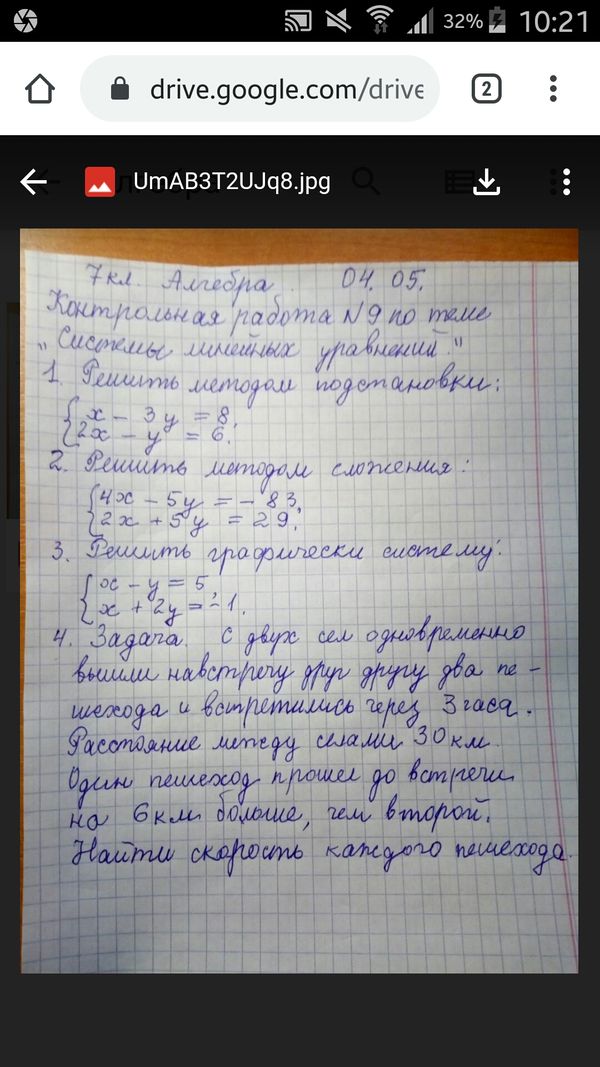 32% 10:21
drive.google.com/drive 2
UmAB3T2UJq8.jpg
7 кл. Алгебра. 04. 05.
Контрольная работа N 9 по теме
„Системы линейных уравнений."
1. Решить методом подстановки:
{ x - 3y = 8,
2x - y = 6.
2. Решить методом сложения:
{ 4x - 5y = - 83,
2x + 5y = 29.
3. Решить графически систему:
{ x - y = 5,
x + 2y = - 1.
4. Задача. С двух сел одновременно
вышли навстречу друг другу два пе-
шехода и встретились через 3 часа.
Расстояние между селами 30 км.
Один пешеход прошел до встречи
на 6 км больше, чем второй.
Найти скорость каждого пешехода.